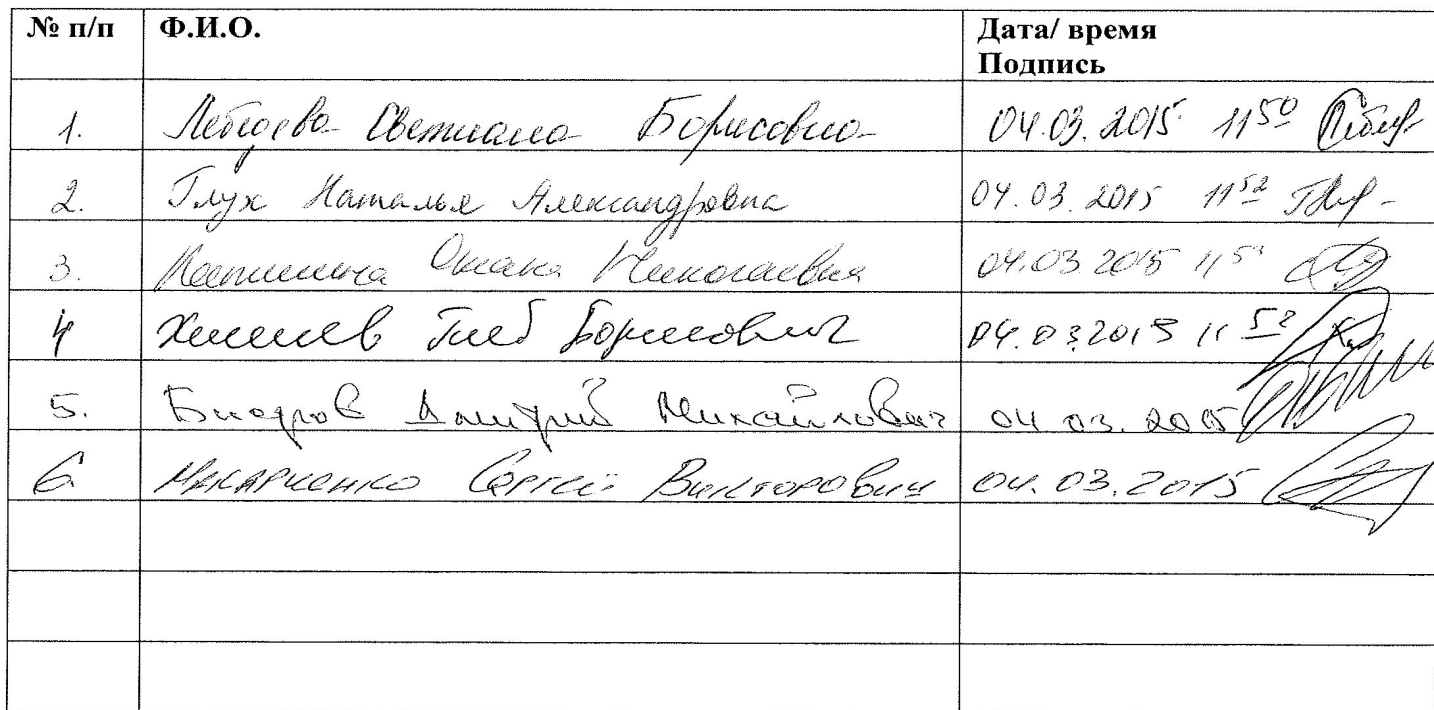 № п/п Ф.И.О. Дата/ время
Подпись
1. Лебедева Светлана Борисовна 04.03.2015 11 50
2. Глух Наталья Александровна 04.03.2015 11 52
3. Оксана Николаевна 04.03.2015
4 Глеб Борисович 04.03.2015 11 52
5. Дмитрий Михайлович 04.03.2015
6 Макаренко Сергей Викторович 04.03.2015